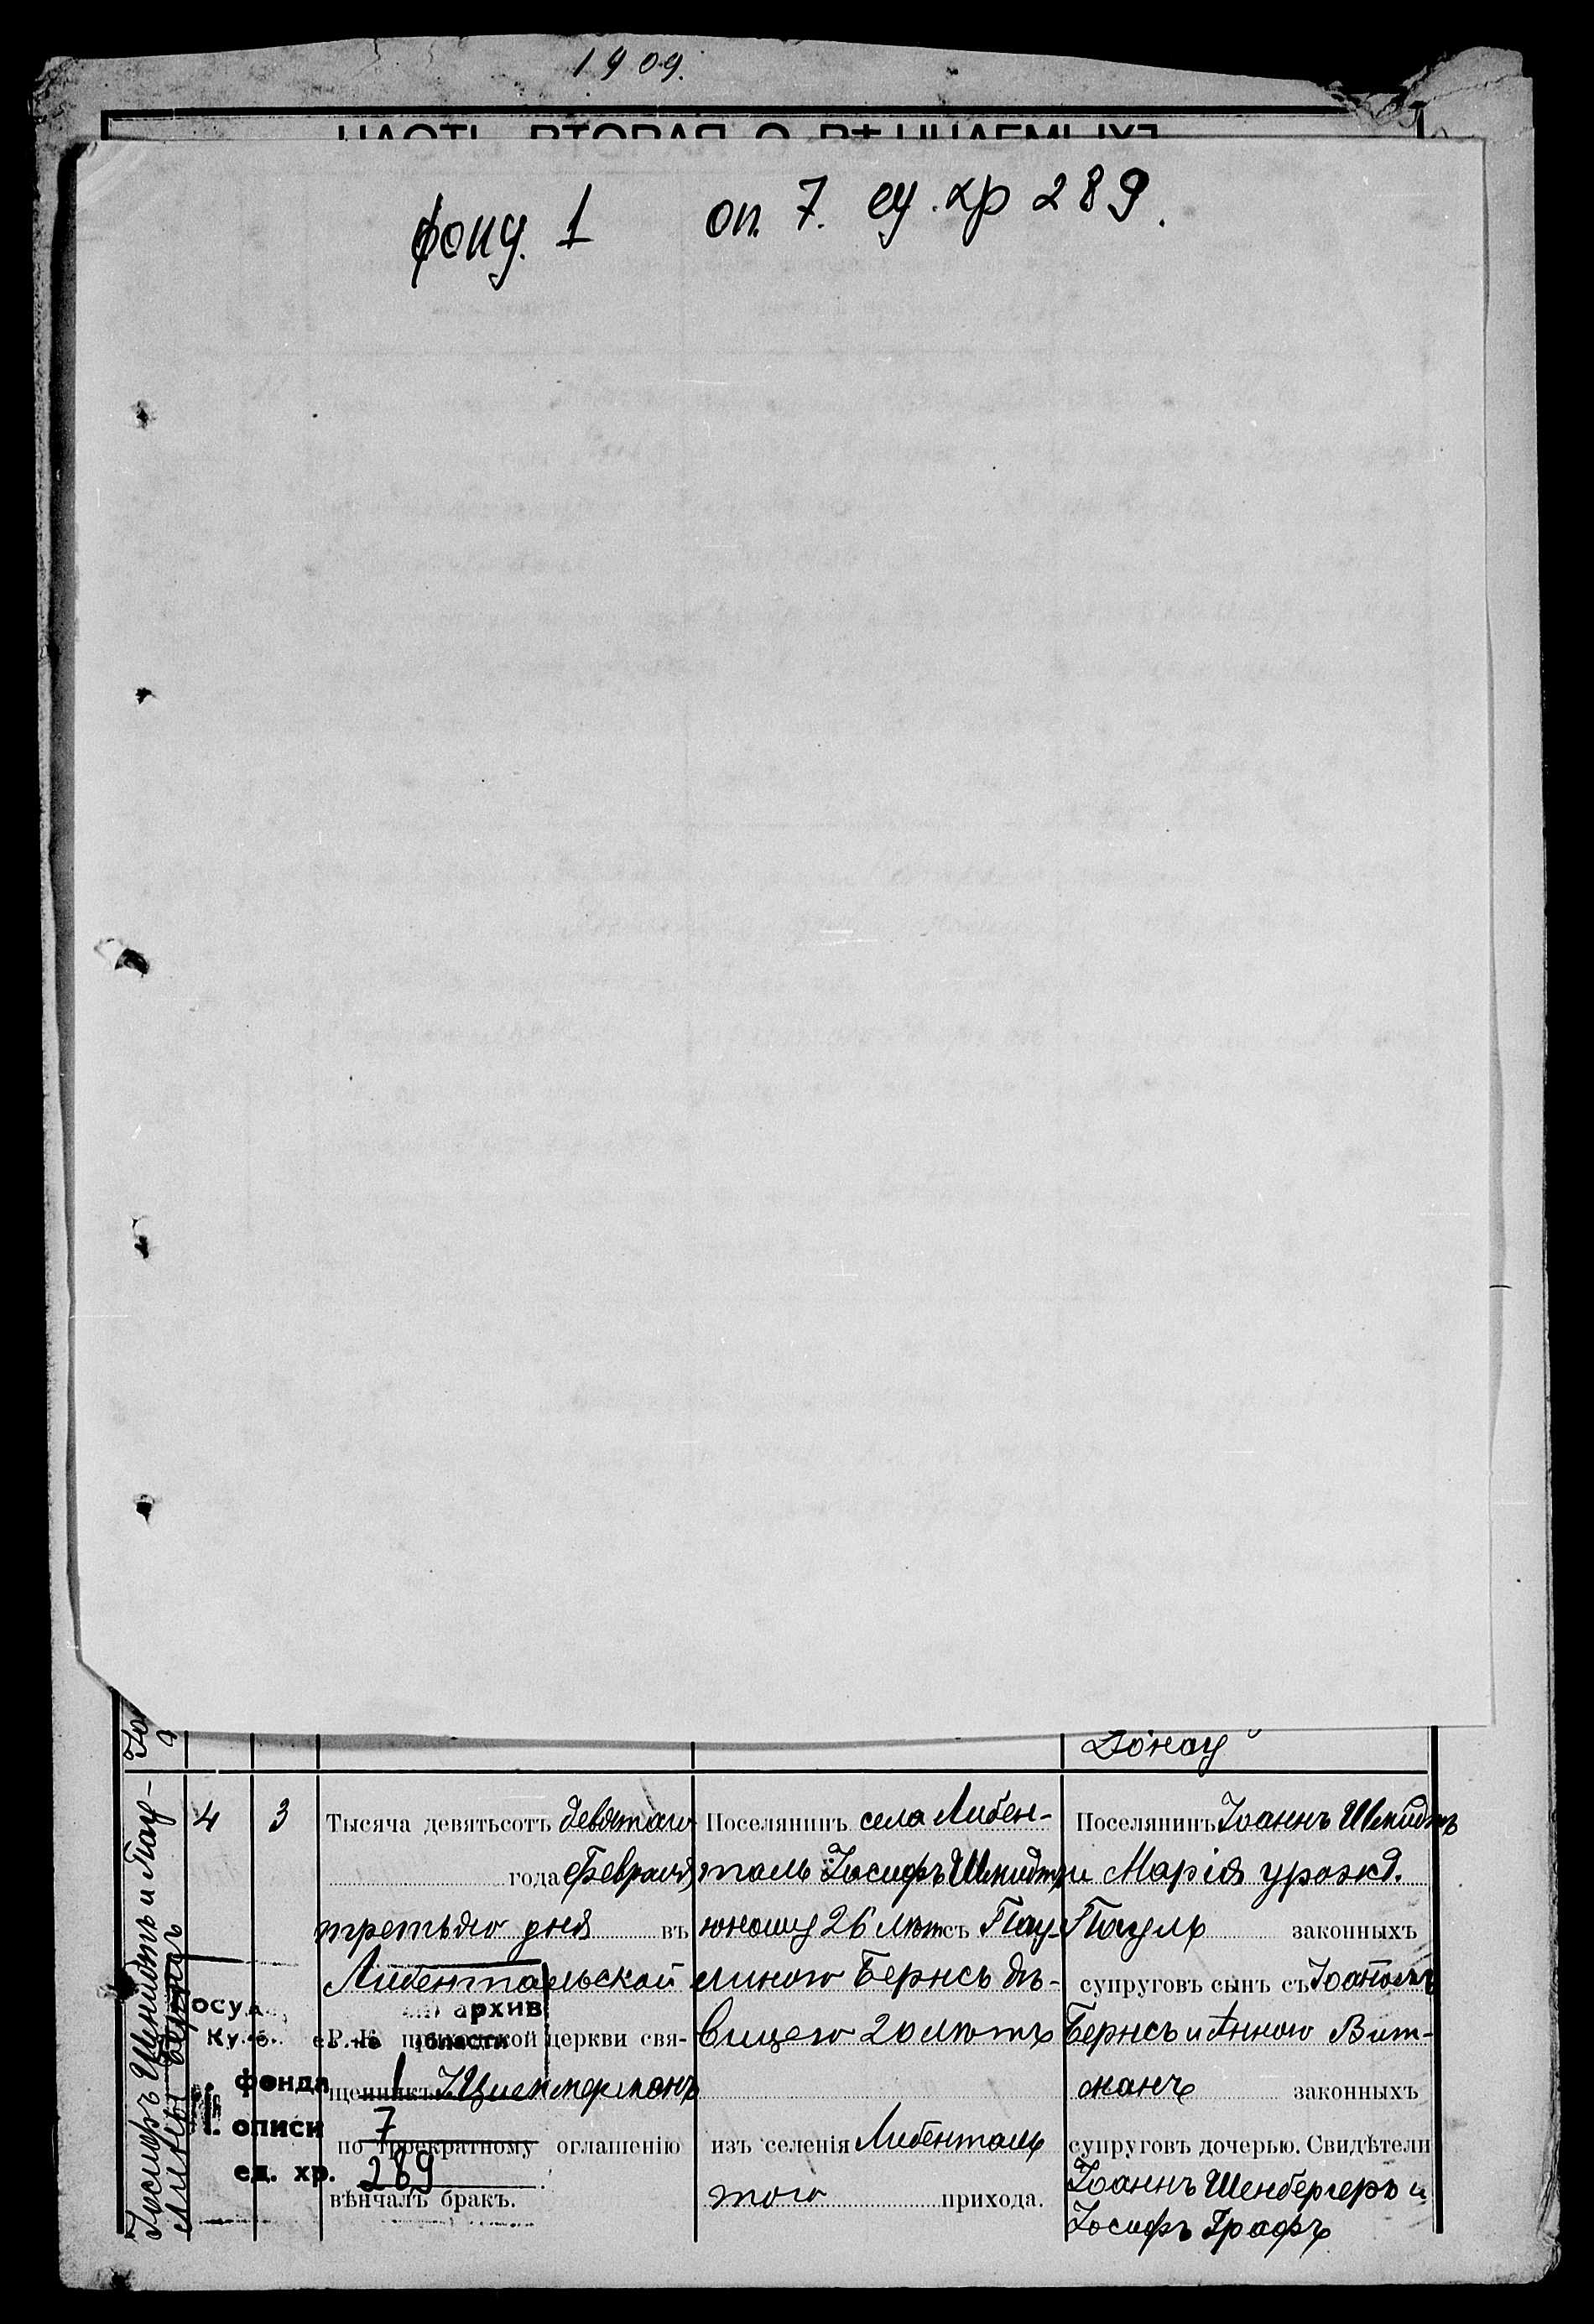 1909.
ЧАСТЬ ВТОРАЯ О ВѢНЧАЕМЫХЪ
фонд. 1 оп. 7. ед. хр 289.
Донау
Іосифъ Шмидтъ и Пау-
лина Бернсъ
4 3
Тысяча девятьсотъ девятаго
года Февраля
третьяго дня въ
Либентальской
Р.-К. приходской церкви свя-
щенникъ І. Циммерманъ
по троекратному оглашенію
вѣнчалъ бракъ.
Поселянинъ села Либен-
таль Іосифъ Шмидтъ
юношу 26 лѣтъ съ Пау-
линою Бернсъ дѣ-
вицею 20 лѣтъ
изъ селенія Либенталь
того прихода.
Поселянинъ Іоаннъ Шмидтъ
и Марія урожд.
Пауль законныхъ
супруговъ сынъ съ
Бернсъ и Анною Вит-
манъ законныхъ
супруговъ дочерью. Свидѣтели
Іоаннъ Шенбергеръ и
Іосифъ Графъ
архив
области
фонда 1
описи 7
ед. хр. 289